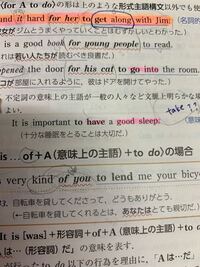 A to do)の形は上のような形式主語構文以外でも使
nd it hard for her to get along with Jim.
女がジムとうまくやっていくことはむずかしいとわかった。)
is a good book for young people to read.
れは若い人たちが読むべき良書だ。)
opened the door for his cat to go into
コが部屋に入れるように、彼はドアを開けてやった。)
不定詞の意味上の主語が一般の人々など文脈上明らかな場
take??
It is important to have a good sleep.
(十分な睡眠をとることは大切だ。)
is...of+A(意味上の主語)+to do〉の場合
s very kind of you to lend me your bicy
自転車を貸してくださって、どうもありがとう。
(←自転車を貸してくれるとは、あなたはとても親切だ。)
It is [was]+形容詞+of+A(意味上の主語)+to d
Aは…(形容詞)だ」の意味を表す.
が行った to do 以下の行為を理由に、「Aは…だ」